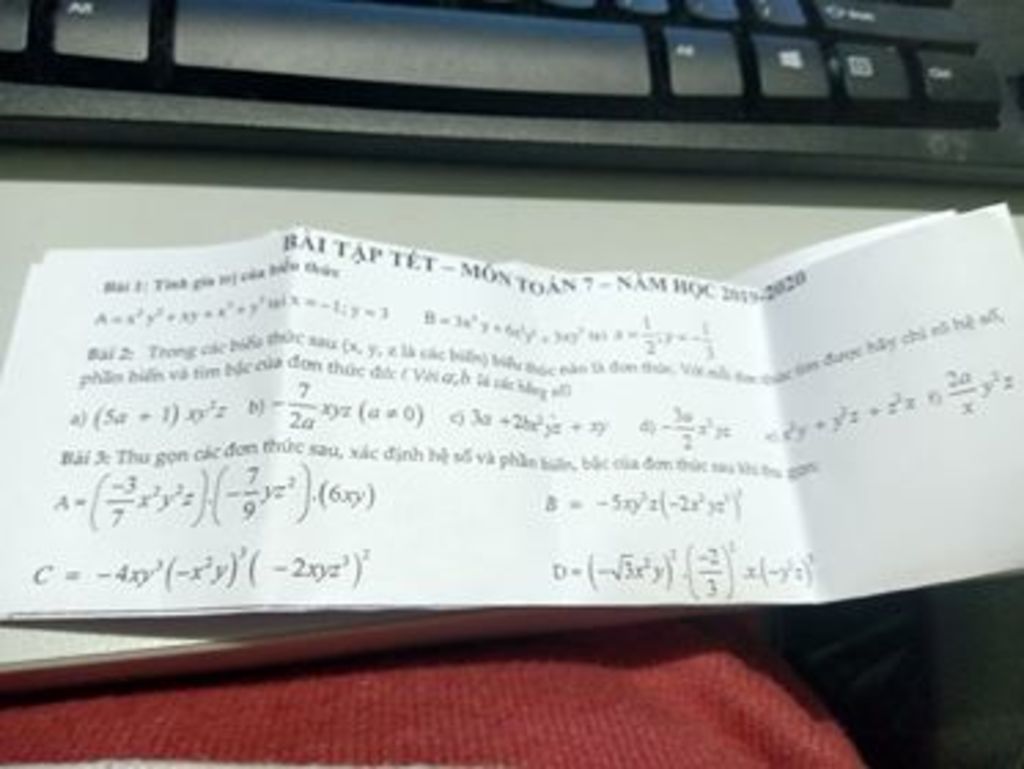 Alt
Alt
Ctrl
BÀI TẬP TẾT – MÔN TOÁN 7 – NĂM HỌC 2019-2020
Bài 1: Tính giá trị của biểu thức
tại x = –1; y = 3 B = 3x³y + 6x²y² + 3xy³
Bài 2: Trong các biểu thức sau (x, y, z là các biến) biểu thức nào là đơn thức. Với mỗi đơn thức tìm được hãy chỉ rõ hệ số,
phần biến và tìm bậc của đơn thức đó: ( Với a,b là các hằng số)
a) (5a + 1) xy²z b) –7/2a xyz (a ≠ 0) c) + xy d) –3a/2 e) + y²z + z²x f) 2a/x y²z
Bài 3: Thu gọn các đơn thức sau, xác định hệ số và phần biến, bậc của đơn thức sau khi thu gọn:
A = (–3/7 x²y²z).(–7/9 yz²).(6xy) B = –5xy²z(–2x²yz²)
C = –4xy³(–x²y)³( –2xyz³)² D = (–√3x²y)².(–2/3) x(–y²z)